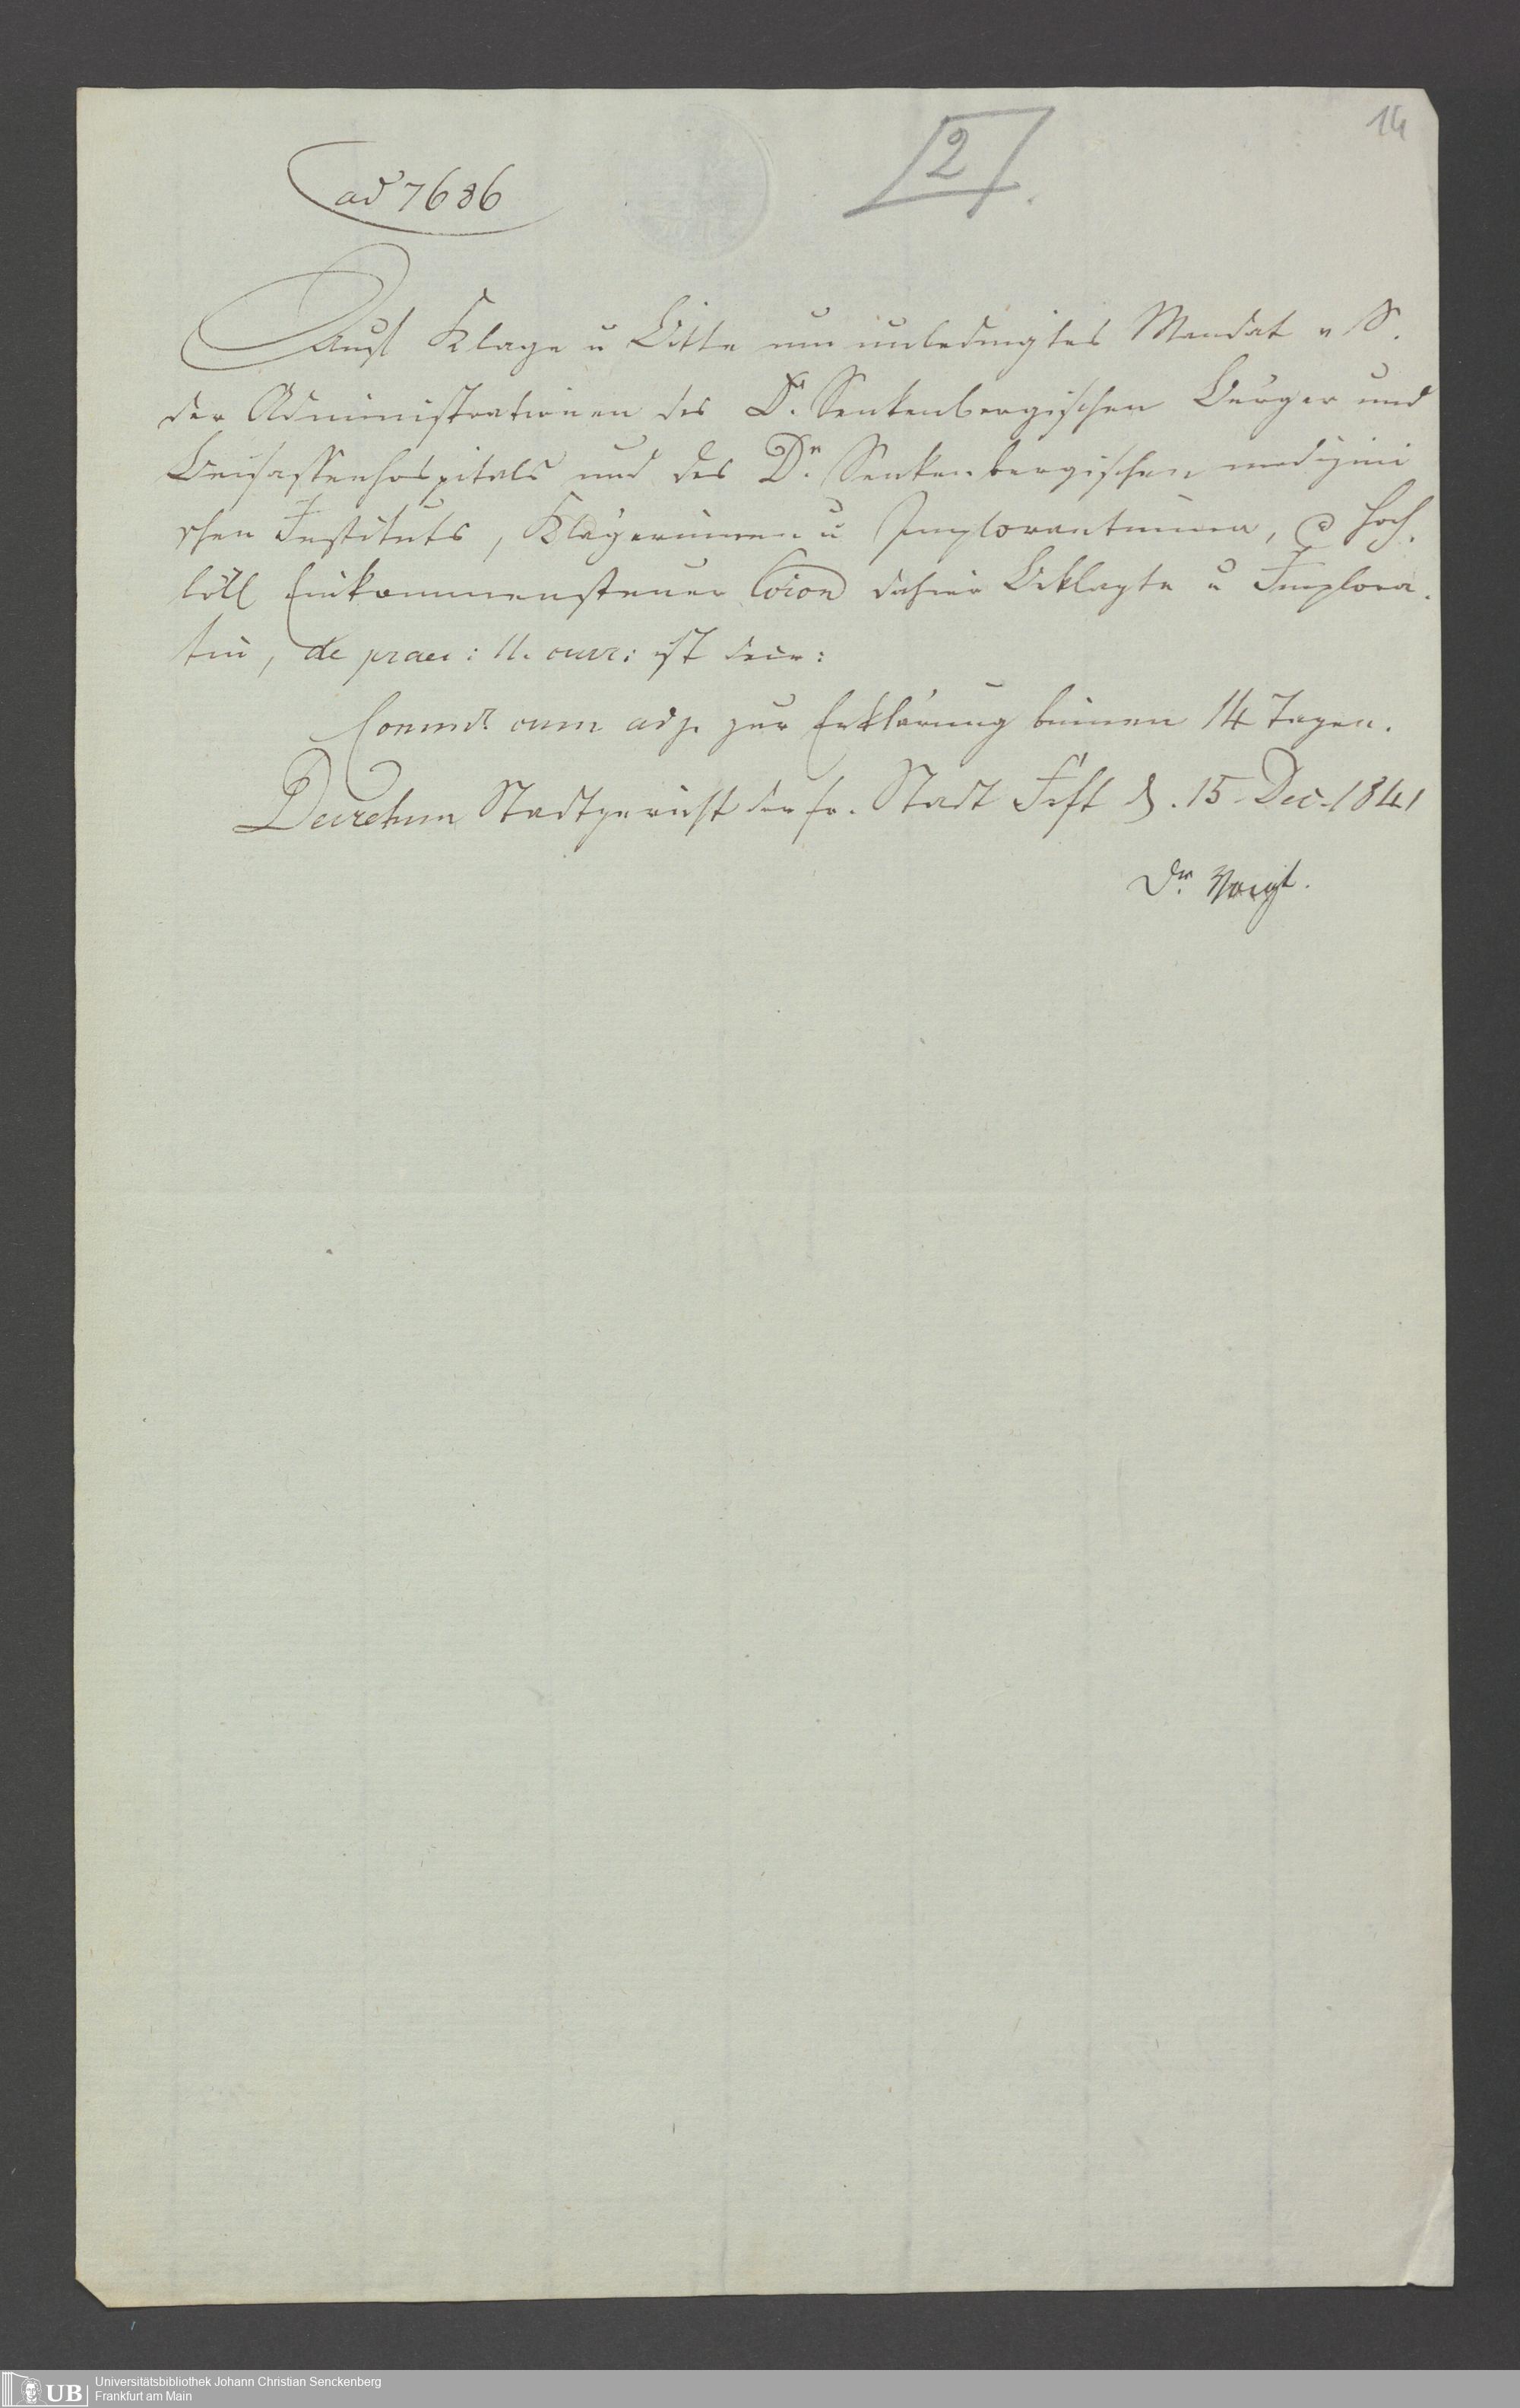 14
2
ad 7686
Auf Klage u Bitte um unbedingtes Mandat v. S.
der Administrationen des Dr. Senkenbergischen Bürger und
Beisassenhospitals und des Dr. Senkenbergischen medizini
schen Instituts, Klägerinnen u Implorantinnen, c Hoch.
löbl Einkommensteuer Coion dahier Beklagte u Implora.
tin, de praes: 11. curr: ist decr:
Commct cum adj. zur Erklärung binnen 14 Tagen.
Decretum Stadtgericht der fr. Stadt Frft d. 15 Dec. 1841
Dr. Voigt.
UB
Universitätsbibliothek Johann Christian Senckenberg
Frankfurt am Main